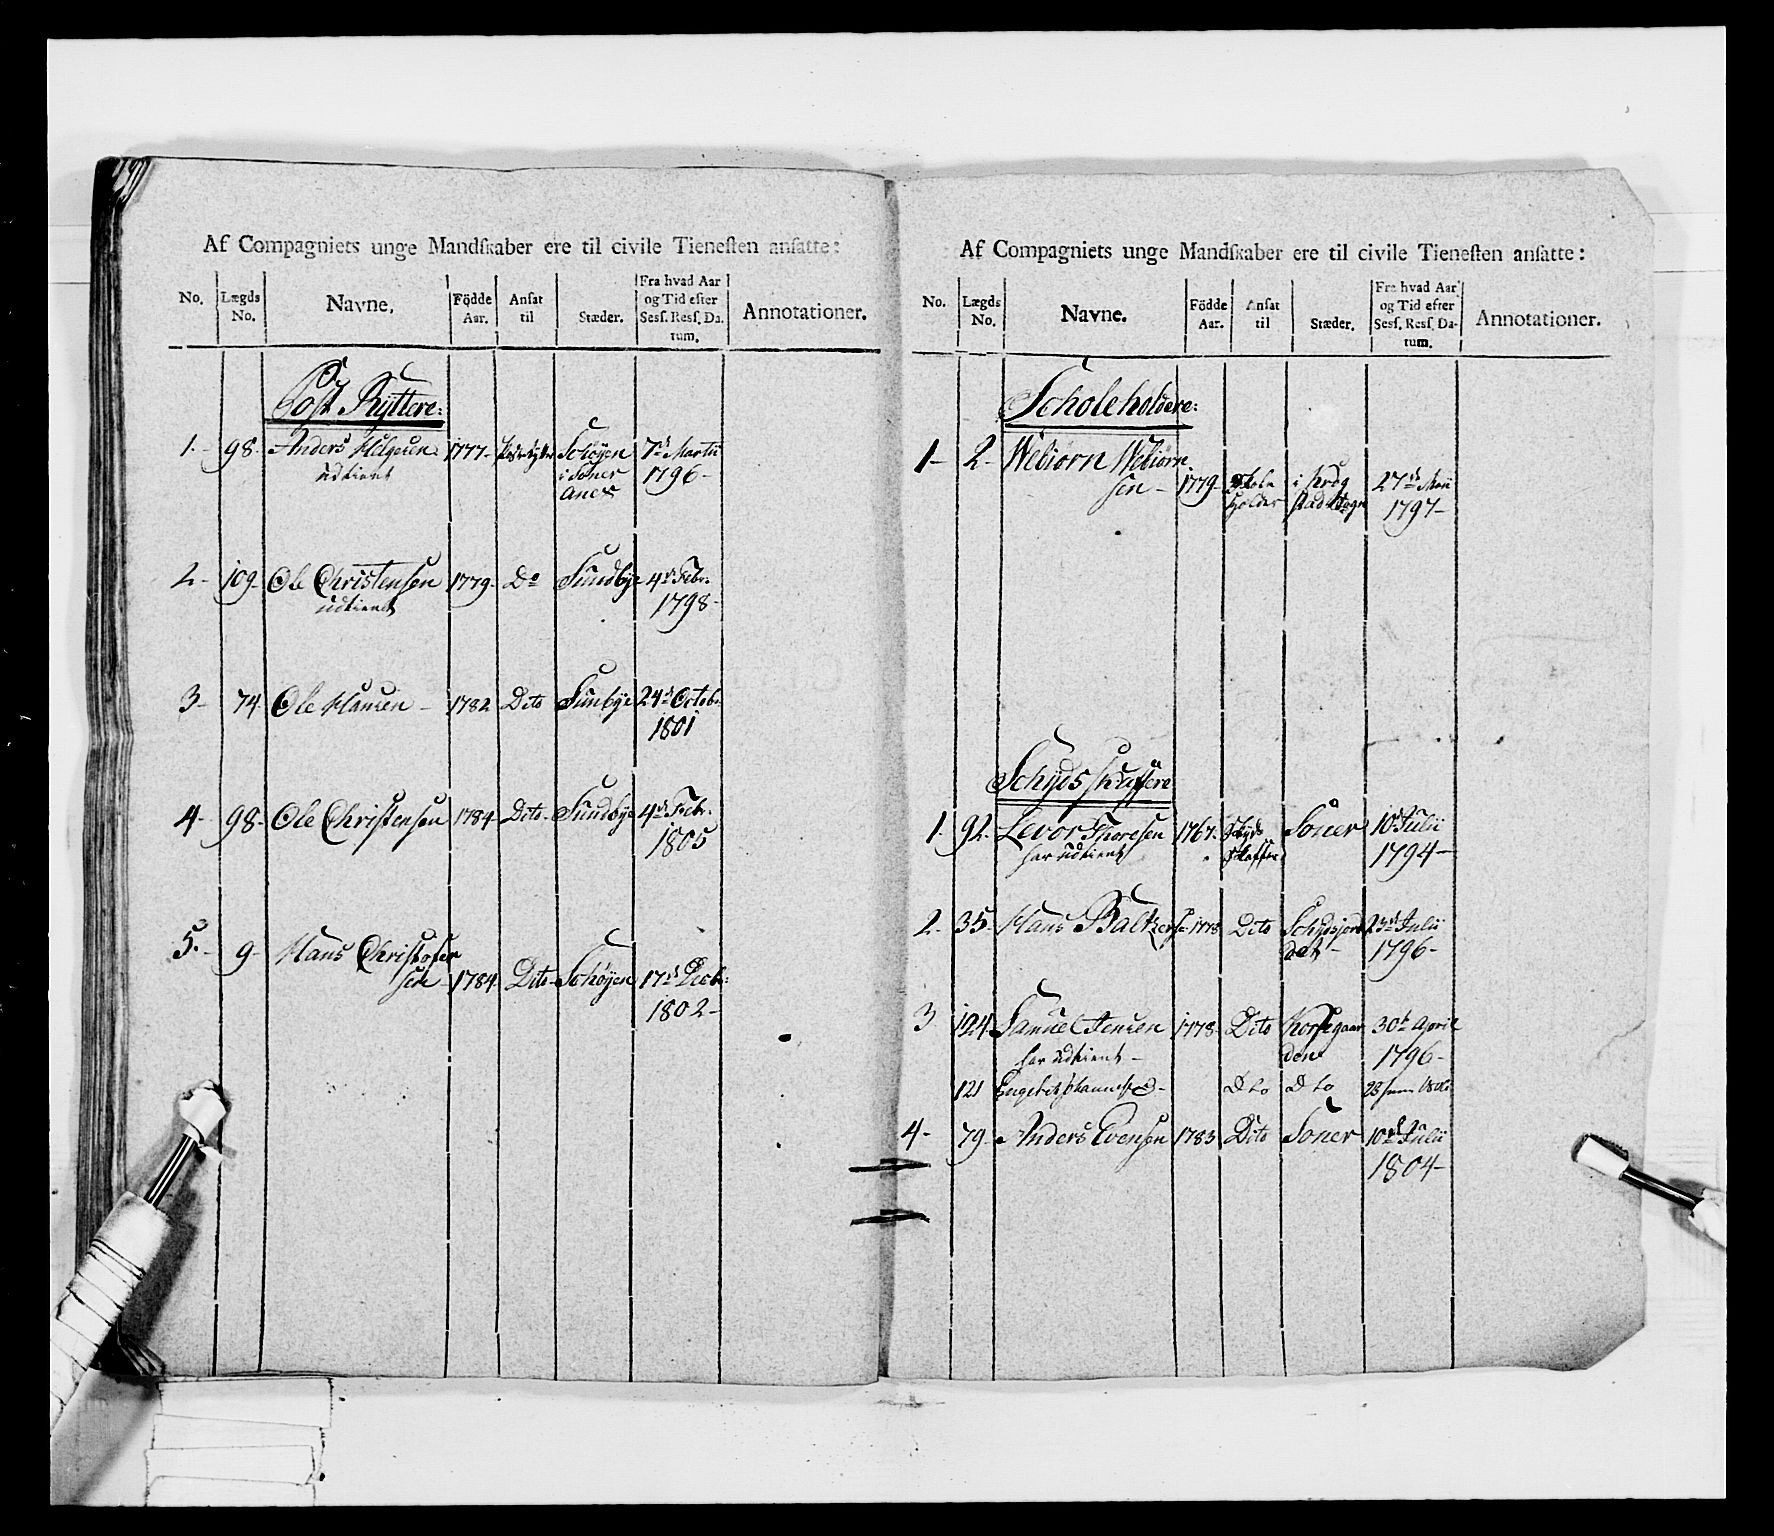 Af Compagniets unge Mandſkaber ere til civile Tieneſten anſatte:
No. Lægds No. Navne. Födde Aar. Anſat til Stæder. Fra hvad Aar og Tid efter Seſſ. Reſſ. Datum. Annotationer.
Post Ryttere:
1. 98. Anders Helgesen 1777 Postrytter Schøyen 7de Martii
udtient i Soner 1796
Anex
2 109 Ole Christensen 1779 Do Sundbye 4de Febr.
udtient 1798
3 74 Ole Hansen 1782 Dito Sunbye 24de Octob.
1801
4 98 Ole Christensen 1784 Dito Sundbye 4de Febr.
1805
5. 9 Hans Christofer
sen 1784 Dito Schøyen 17de Decbr:
1802
Af Compagniets unge Mandſkaber ere til civile Tieneſten anſatte:
No. Lægds No. Navne. Födde Aar. Anſat til Stæder. Fra hvad Aar og Tid efter Seſſ. Reſſ. Datum. Annotationer.
Scholeholdere:
1 2 Webiørn Webiørn
sen 1779 Skole i Krog 27de Maii
holder stad Sogn 1797
Schydsskaffere
1. 92. Levor Thoresen 1767. Skyds Soner 10de Julii
har udtient skaffer 1794
2. 35. Hans Baltzers. 1778 Dito Schydsjor 23de Julii
det 1796
3 124 Samuel Jensen 1778 Dito Korsegaar 30te April
har udtient den 1796
121 Dto Dto
4 79 Anders Evensen 1783 Dito Soner 10de Julii
1804